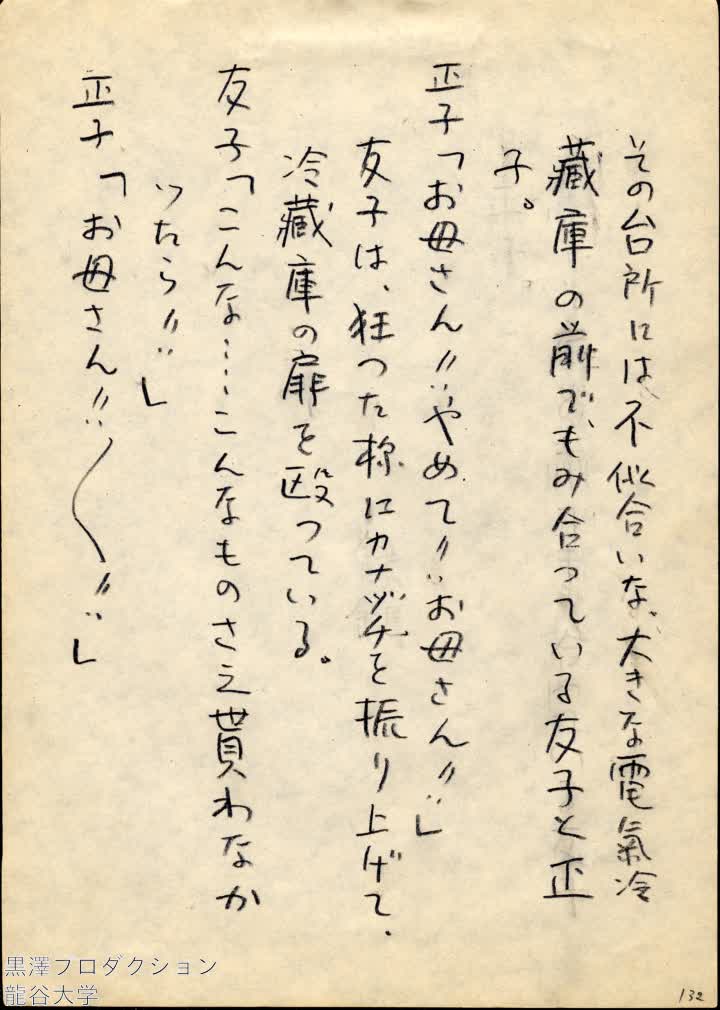 その台所には不似合いな、大きな電氣冷
藏庫の前でもみ合っている友子と正
子。
正子「お母さん!!やめて!!お母さん!!」
友子は、狂った様にカナヅチを振り上げて、
冷藏庫の扉を毆っている。
友子「こんな……こんなものさえ貰わなか
ったら!!」
正子「お母さん!!〱!!」
黒澤プロダクション
龍谷大学
132